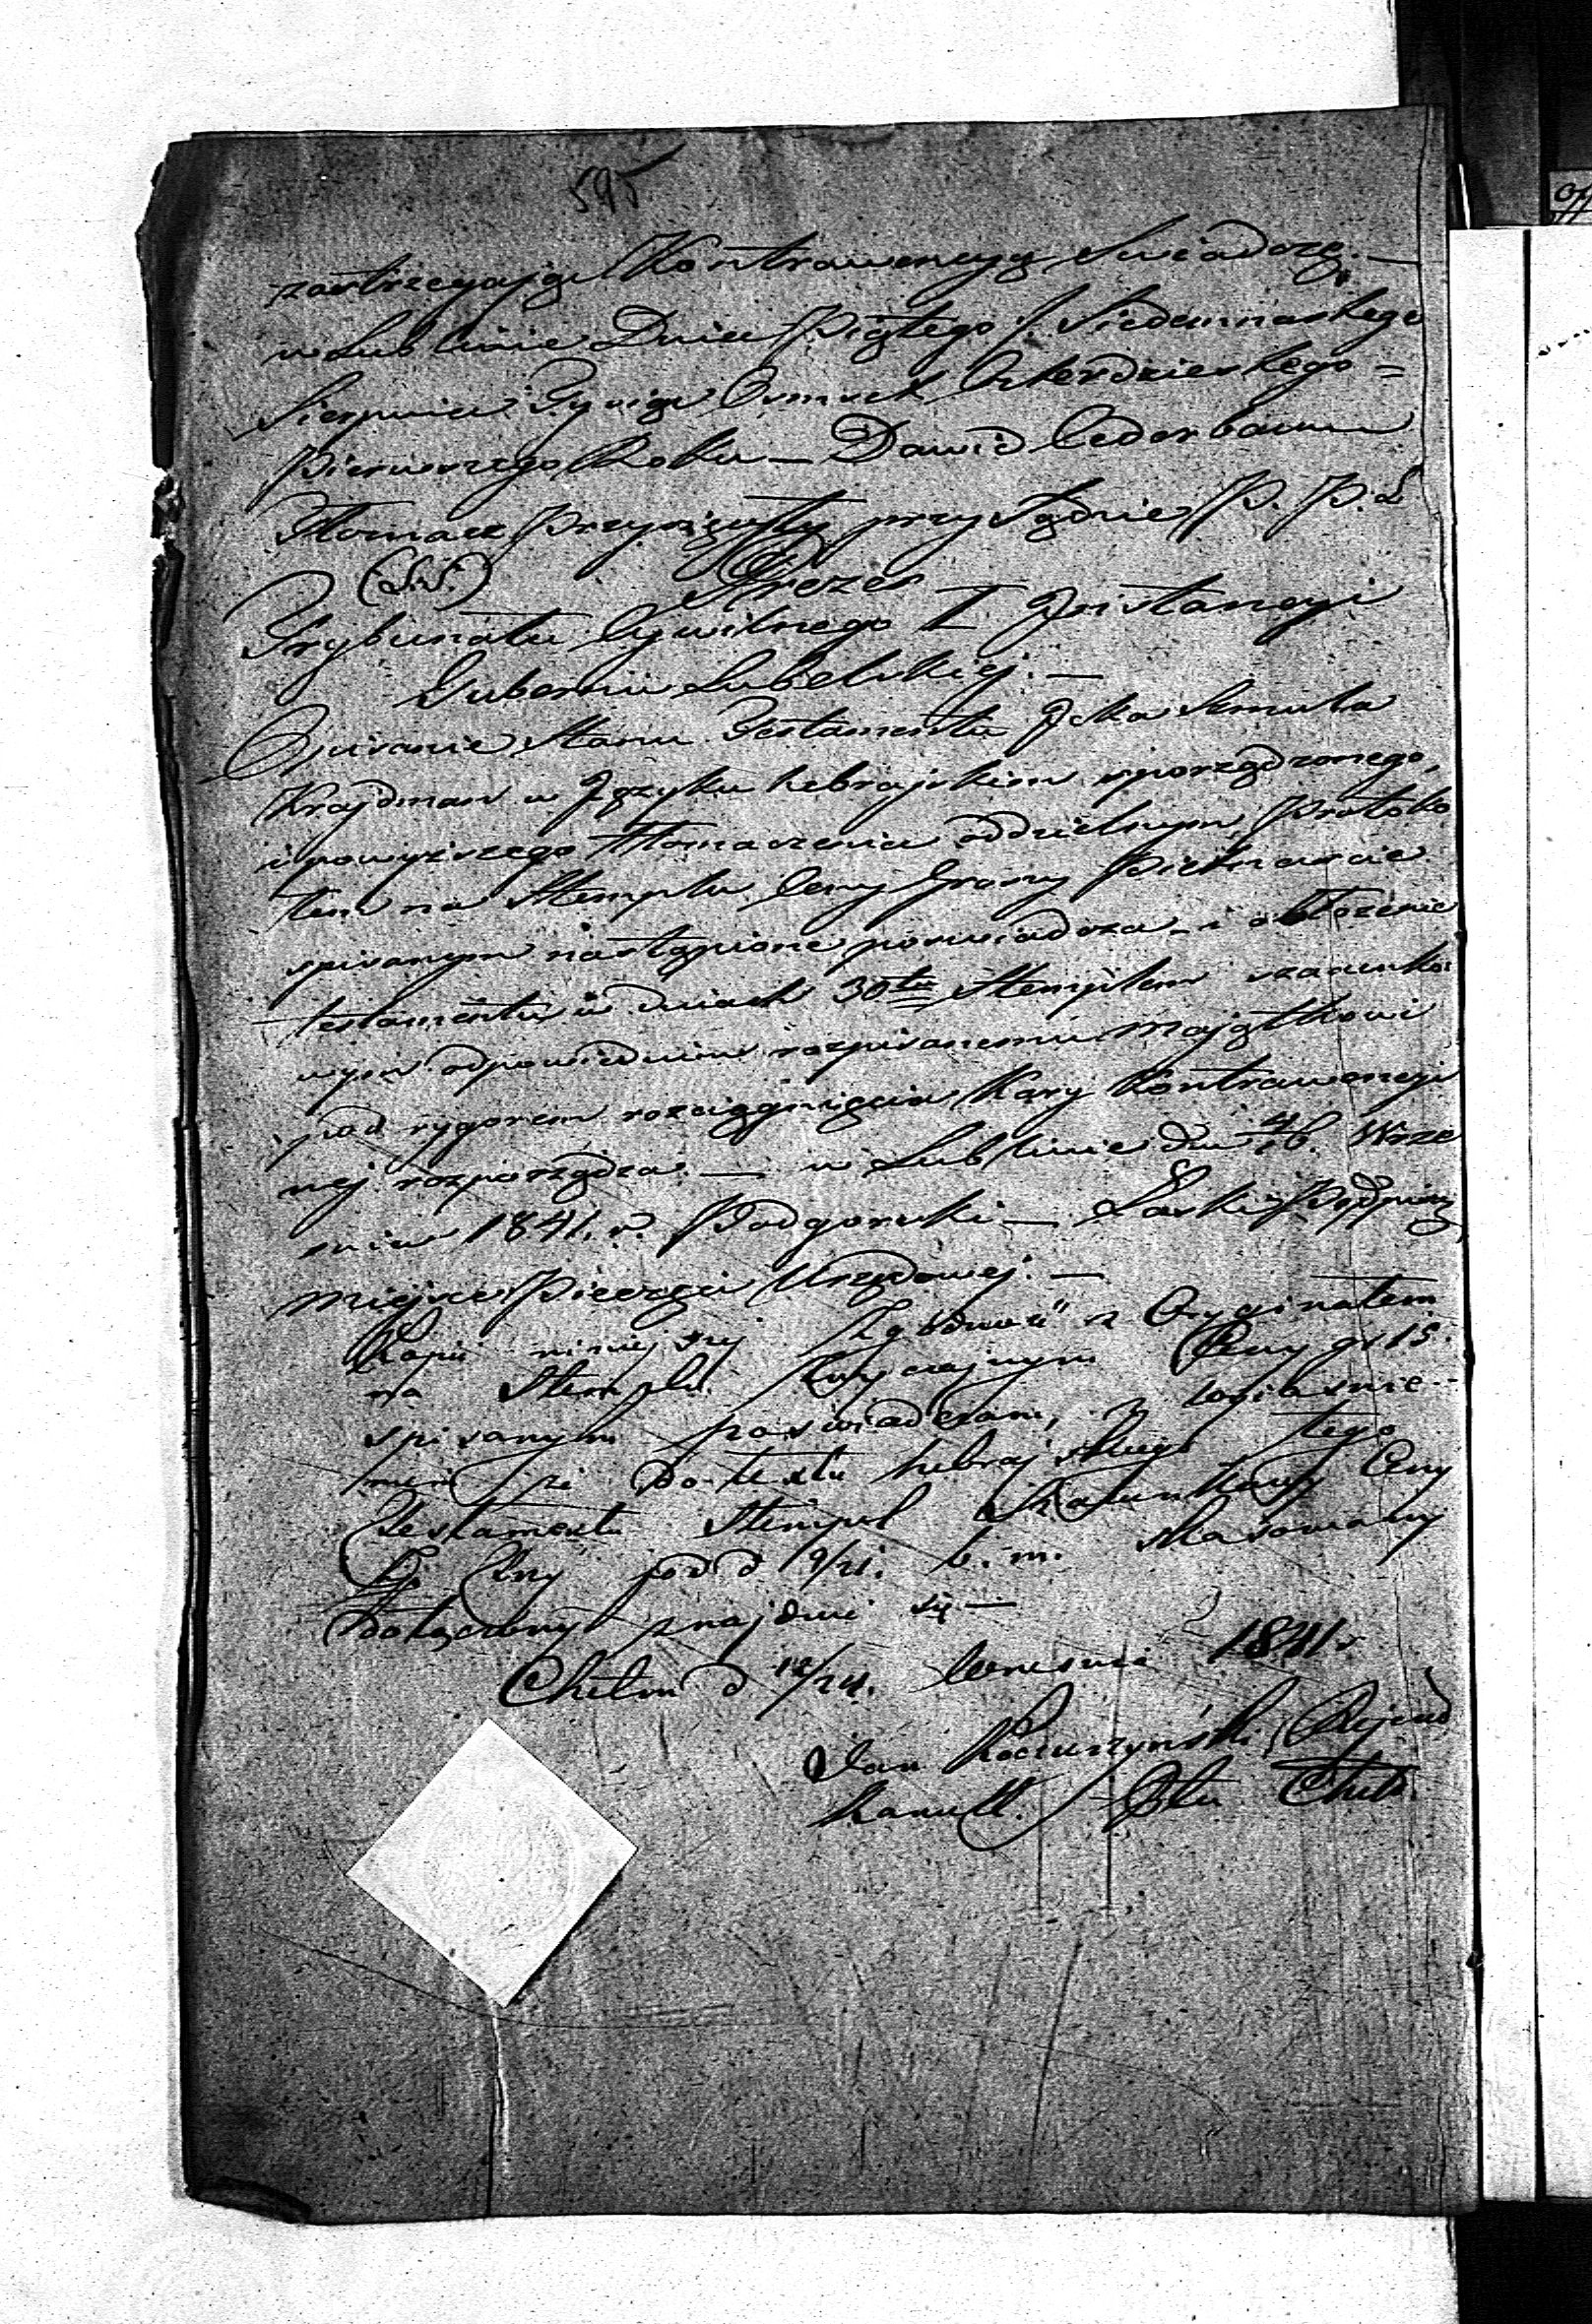 595
zastrzegając Kontrawencyą świadczę. —
w Lublinie Dnia Piątego /. Siedemnastego
Sierpnia Tysiąc Osmset Czterdziestego =
Pierwszego Roku — Dawid Cederbaum
Tłomacz Przysięgły przy Sądzie P. P. L
(L.S.) Prezes
Trybunału Cywilnego I Jnstancyi
Gubernii Lubelskiej. —
Opisanie Stanu Testamentu Jcka Smula
Krajdman w Języku hebrajskim sporządzonego,
i powyższego Tłomaczenia oddzielnym Protoko
łem na Stemplu Ceny Groszy Piętnaście
spisanym nastąpione poswiadcza — i obłożenie
testamentu w dniach 30tu Stemplem szacunko
wym odpowiednim rozpisanemu Majątkowi
pod rygorem rozciągnięcia Kary Kontrawencyi
nej rozporządza. — w Lublinie dnia 4/16. Wrze
snia 1841. r. Podgorski — Laski
Miejsce Pieczęci Urzędowej. —
Kopii niniejszej Zgodność z Oryginałem
na Stemplu Zwyczajnym Ceny gr 15.
spisanym poswiadczam, z
że do textu hebrajskiego tego
Testamentu Stempel Szacunkowy Ceny
pod d 9/21. b. m. skasowany
dołączony znajduie się —
Chełm d 12/24. Wrzesnia 1841 r
Jan Kochurzyński, Rejent
Kancell. Ptu Chełm.